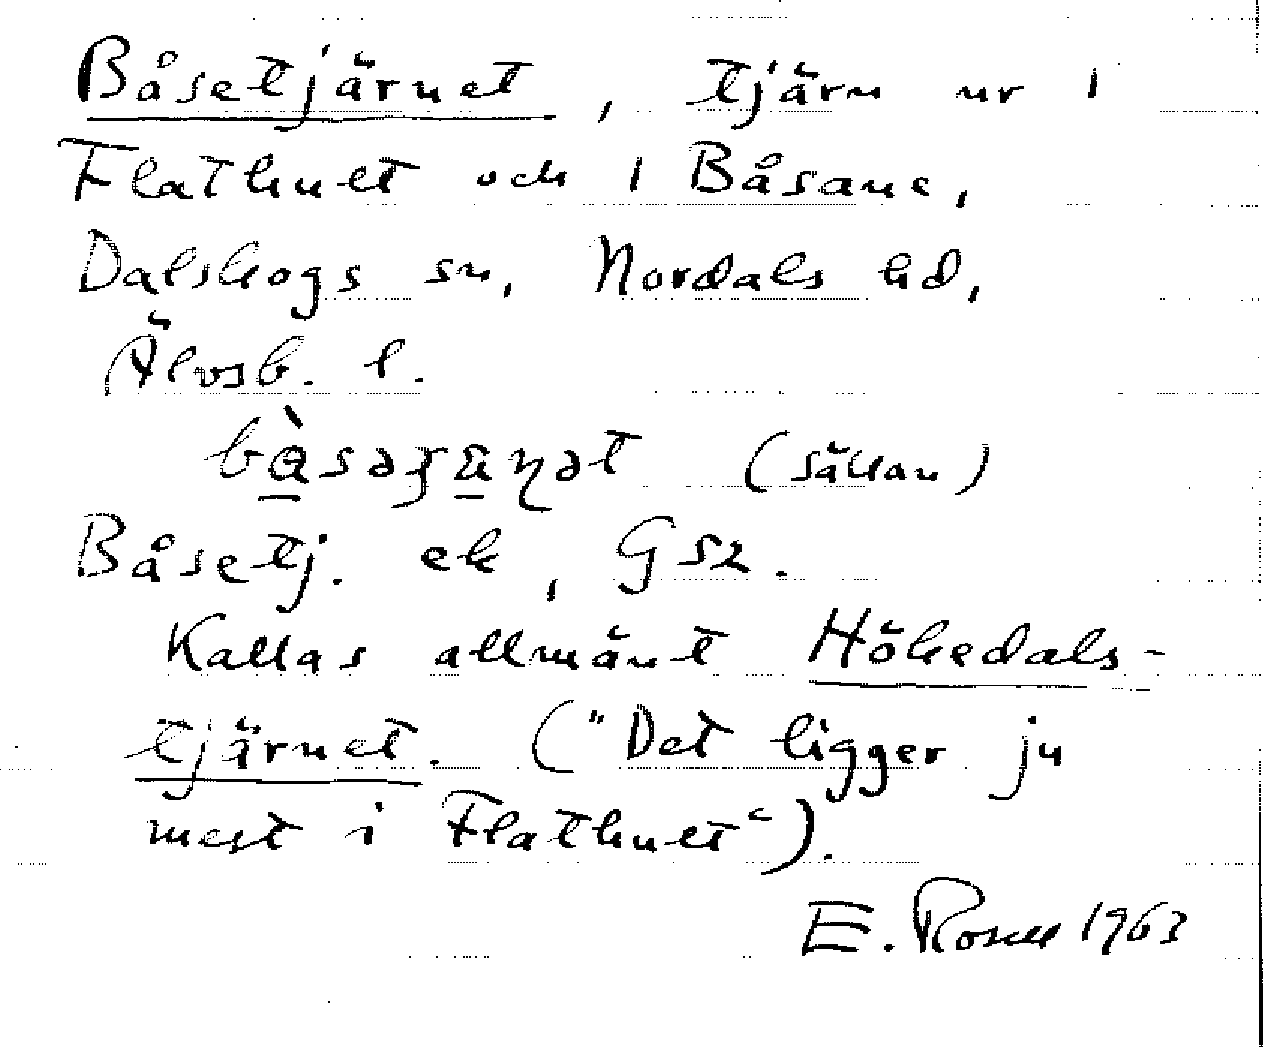 Båsetjärnet, tjärn nr 1
Flathult och 1 Båsane,
Dalskogs sn, Nordals hd,
Älvsb. l.
(sällan)
Båsetj. ek, GSK.
Kallas allmänt Hökedals-
tjärnet. ("Det ligger ju
mest i Flathult").
E. Rosell 1963